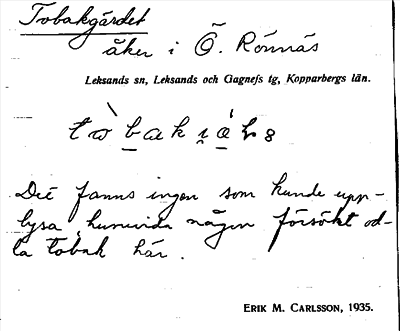 Tobakgärdet
åker i Ö. Rönnäs
Leksands sn, Leksands och Gagnefs tg, Kopparbergs län.
Det fanns ingen som kunde upp-
lysa, huruvida någon försökt od-
la tobak här.
ERIK M. CARLSSON, 1935.